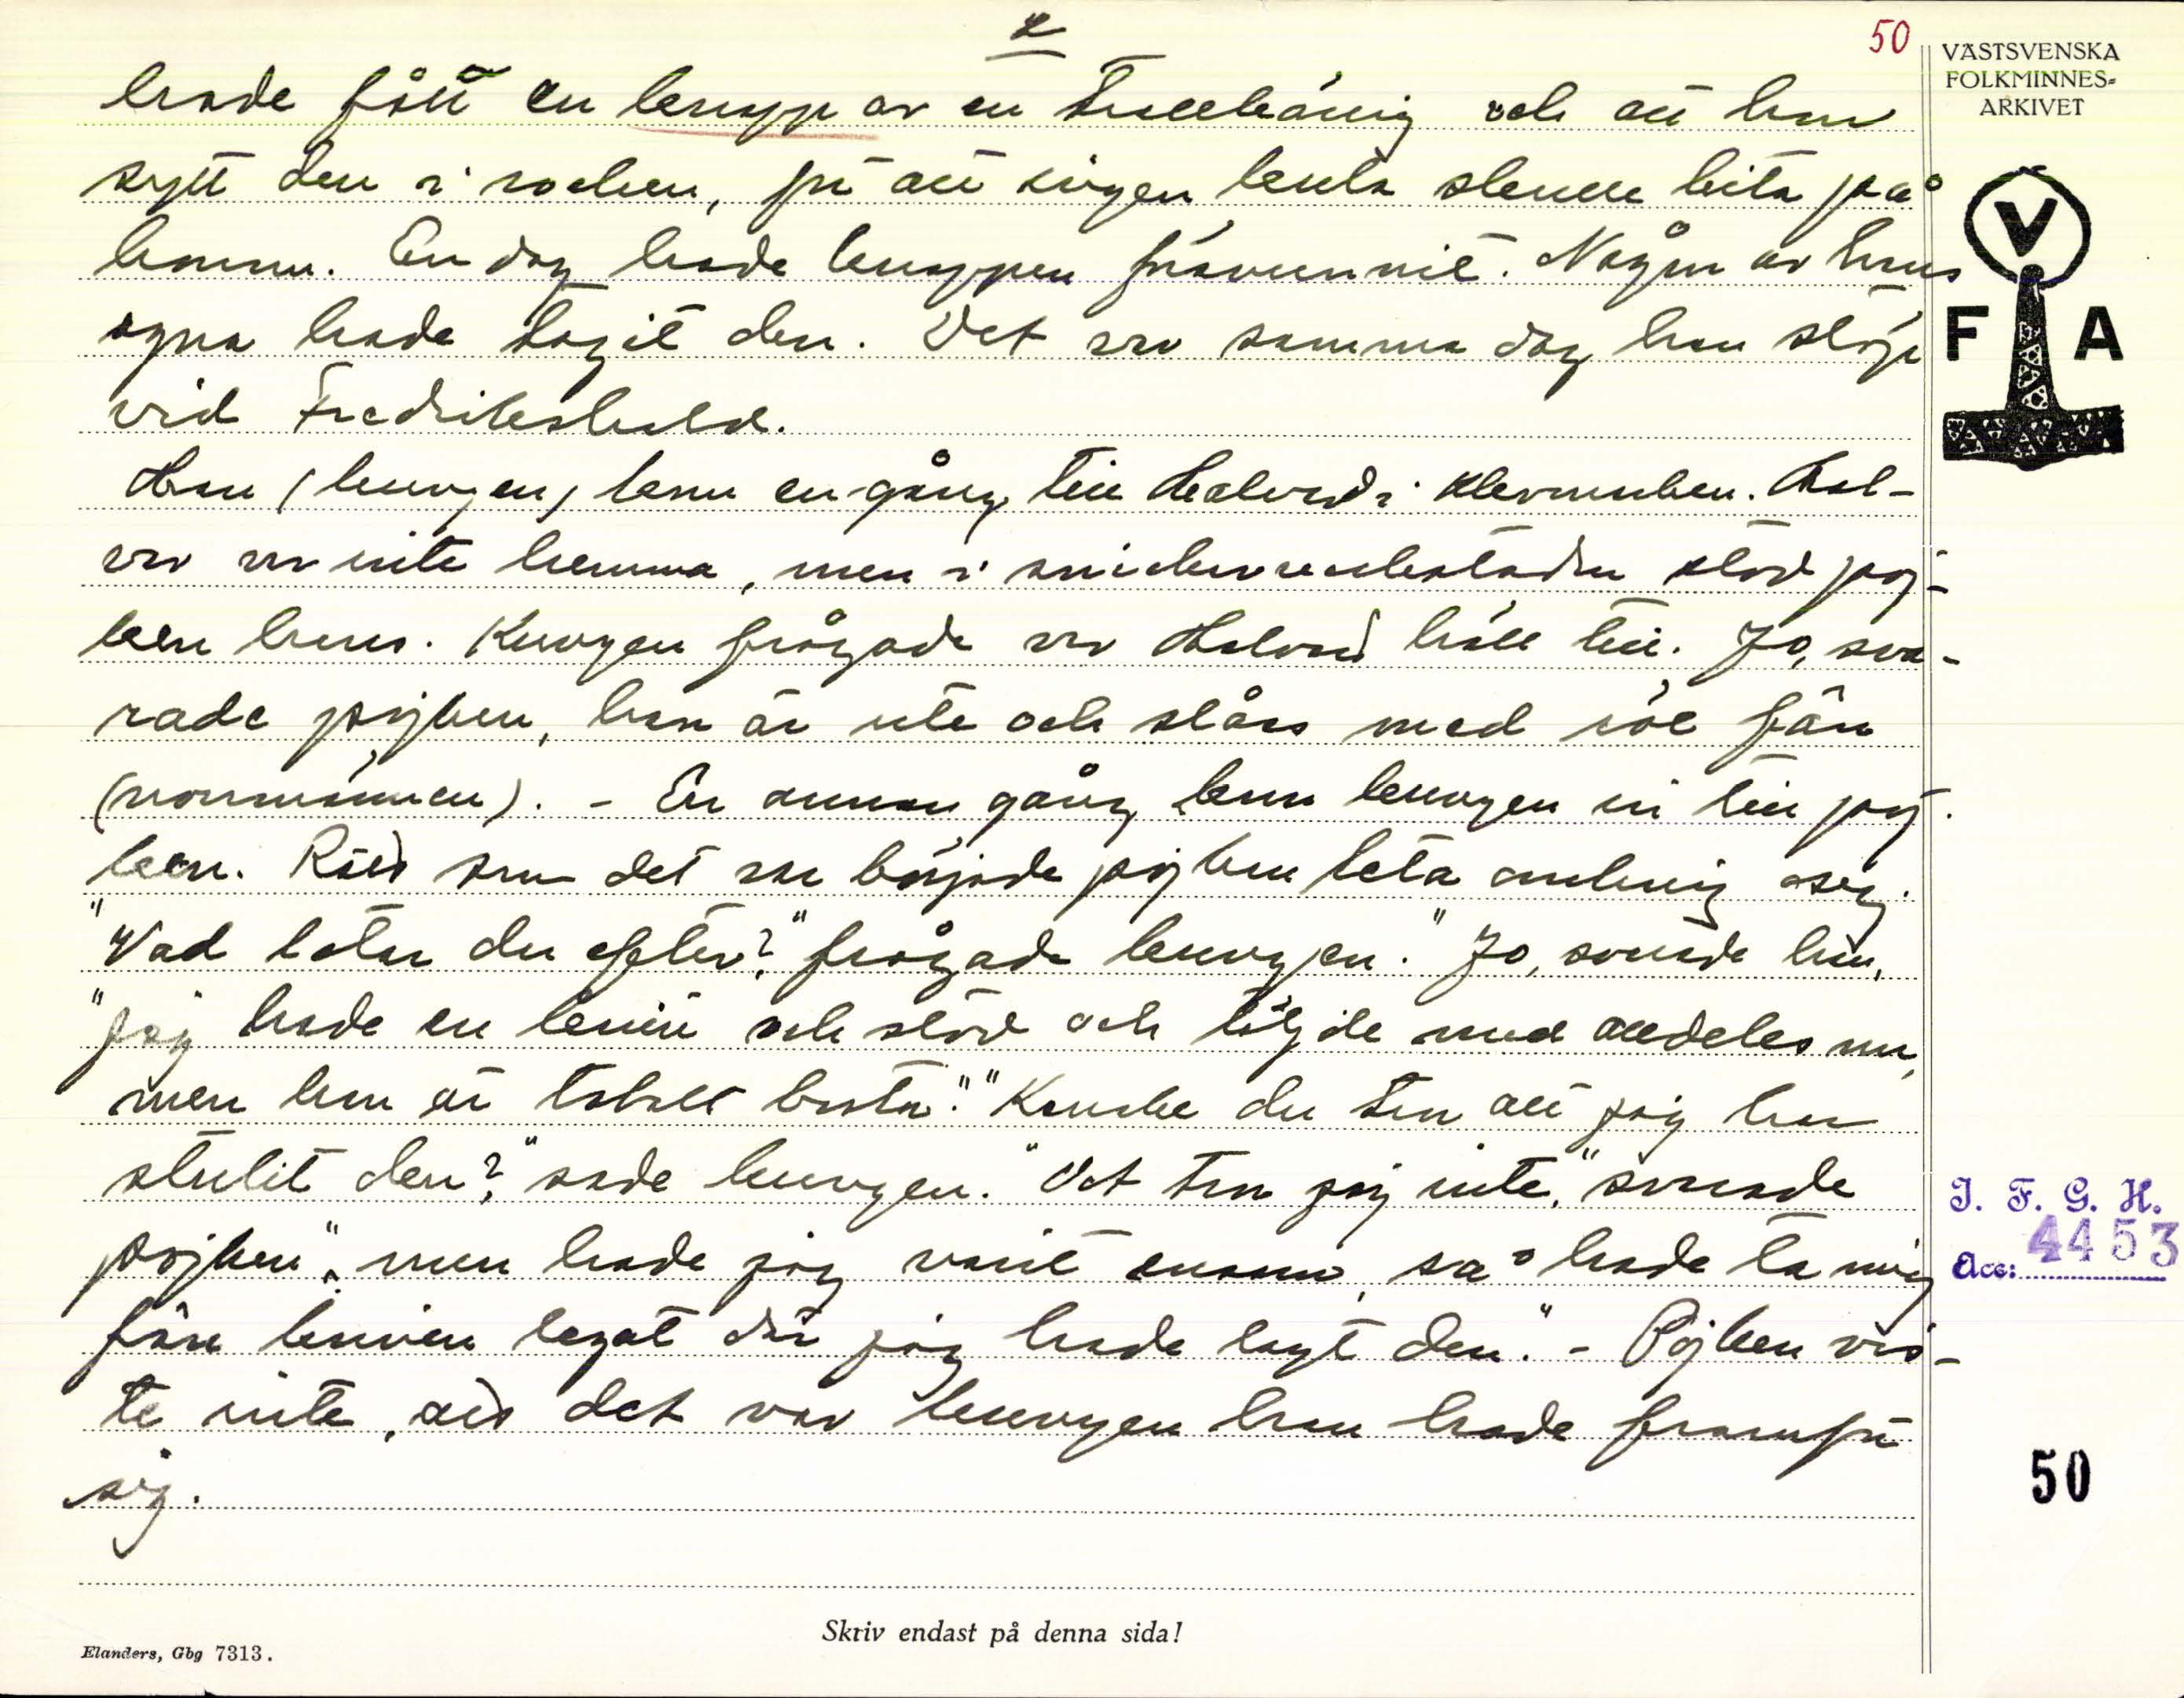 2
50
VÄSTSVENSKA
FOLKMINNES-
ARKIVET
hade fått en knapp av en trollkäring och att han
sytt den i rocken, för att ingen kula skulle bita på
honom. En dag hade knappen försvunnit. Någon av hans
egna hade tagit den. Det var samma dag han stöp
vid Fredrikshald.
V
F A
Han (kungen) kom en gång till Halvard i Klevmarken. Hal-
var var inte hemma, men i snickarverkstaden stod poj-
ken hans. Kungen frågade var Halvard höll till. Jo, sva-
rade pojken, han är ute och slåss med röe fän
(norrmännen). - En annan gång kom kungen in till poj-
ken. Rätt som det var började pojken leta omkring sig.
"Vad letar du efter?" frågade kungen. "Jo, svarade han,
"jag hade en kniv och stod och täljde med alldeles nu,
men han är totalt borta." "Kanske du tror att jag har
stulit den?" sade kungen. "Det tror jag inte," svarade
pojken, "men hade jag varit ensam, så hade ta mig
fän kniven legat där jag hade lagt den." - Pojken viss-
te inte, att det var kungen han hade framför
sig.
I. F. G. H.
Acc: 4453
50
Skriv endast på denna sida!
Elanders, Gbg 7313.